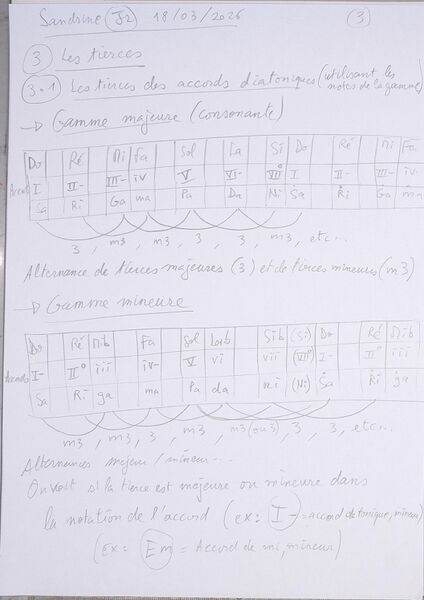 Sandrine J2 18/03/2026 3
3 Les tierces
3.1 Les tierces des accords diatoniques (utilisant les notes de la gamme)
→ Gamme majeure (consonante)
Do Ré Mi Fa Sol La Si Do Ré Mi Fa
Accords I II- III- IV V VI- VII° I II- III- IV
Sa Ri Ga ma Pa Da Ni Sa Ri Ga ma
3, m3, m3, 3, 3, m3, etc...
Alternance de tierces majeures (3) et de tierces mineures (m3)
→ Gamme mineure
Do Ré Mib Fa Sol Lab Sib (Si) Do Ré Mib
Accords I- II° iii iv- V vi vii (VII°) I- II° iii
Sa Ri ga ma Pa da ni (Ni) Sa Ri ga
m3, m3, 3, m3, m3 (ou 3), 3, 3, etc...
Alternances majeur/mineur...
On voit si la tierce est majeure ou mineure dans
la notation de l'accord (ex: I- = accord de tonique, mineur)
(ex: Em = Accord de mi, mineur)